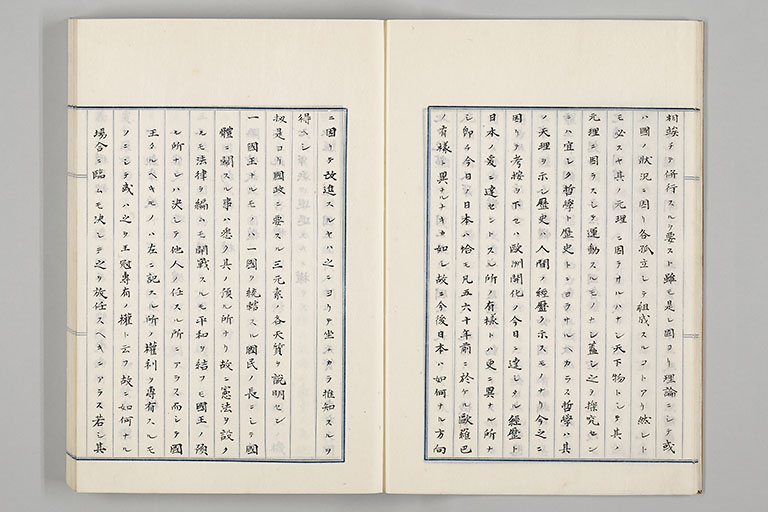 相俟チテ併行スルヲ要スト雖モ是レ固ヨリ理論ニシテ或
ハ國ノ狀況ニ因リ各孤立シテ組成スルコトアリ然レトモ
必スヤ其ノ元理ニ因ラサルハナシ天下物トシテ其ノ
元理ニ因ラスシテ運動スルモノナシ蓋シ之ヲ探究セン
ニハ宜シク哲學ト歷史トニヨラサルヘカラス哲學ハ其
ノ天理ヲ示シ歷史ハ人間ノ經歷ヲ示スモノナリ今之ニ
因リテ考按ヲ下セハ歐洲開化ノ今日ニ達シタル經歷ト
日本ノ爰ニ達セントスル所ノ有樣トハ更ニ異ナル所ナ
シ即チ今日ノ日本ハ恰モ凡五六十年前ニ於ケル歐羅巴
ノ有樣ト異ナルナキカ如シ故ニ今後日本ハ如何ナル方向
ニ因リテ故進スルヤハ之ニヨリテ坐ニカラ推知スルヲ
得ヘシ
扨是ヨリ國政ニ要スル三元素ノ各天質ヲ說明セン
一 國王タルモノハ一國ヲ統轄スル國民ノ長ニシテ國
體ニ關スル事ハ悉ク其ノ預ル所ナリ故ニ憲法ヲ設ク
ルモ法律ヲ編ムモ開戰スルモ平和ヲ結フモ國王ノ預
ル所ナレハ決シテ他人ノ任スル所ニアラス而シテ國
王タルヘキモノハ左ニ記スル所ノ權利ヲ專有スルモ
ノニシテ或ハ之ヲ王冠專有ノ權ト云フ故ニ如何ナル
場合ニ臨ムモ決シテ之ヲ放任スヘキニアラス若シ其